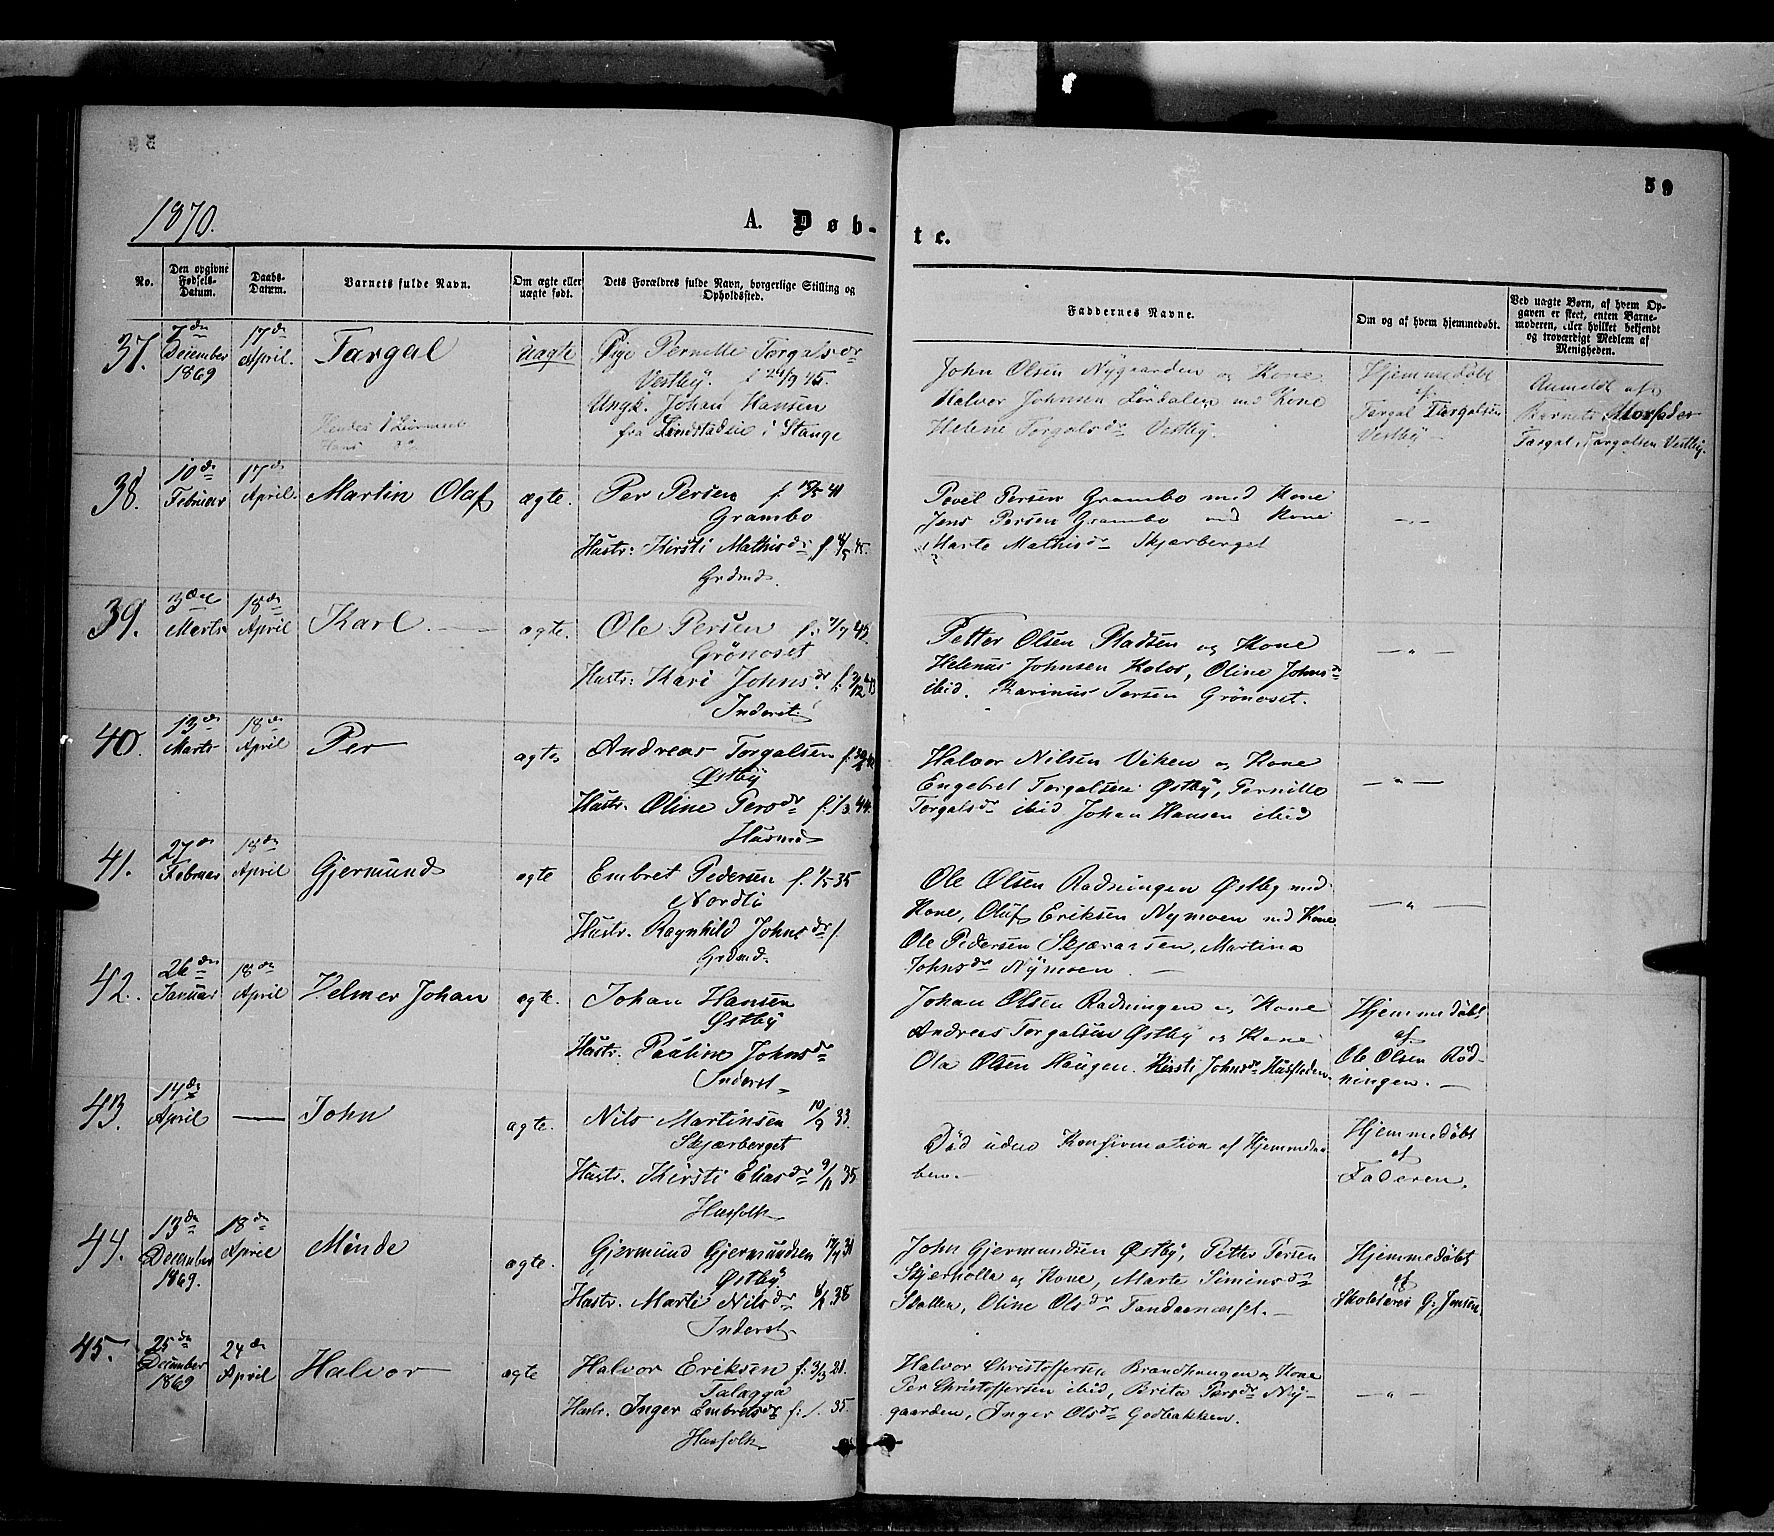 59
1870.
A. Døb-
te.
No.
Den opgivne Fødsels-Datum.
Daabs-Datum.
Barnets fulde Navn.
Om ægte eller uægte født.
Dets Forældres fulde Navn, borgerlige Stilling og Opholdssted.
Faddernes Navne.
Om og af hvem hjemmedøbt.
Ved uægte Børn, af hvem Opgaven er skeet, enten Barnemoderen, eller hvilket bekjendt og troværdigt Medlem af Menigheden.
37.
7de December 1869
17de April.
Targal
Uagte
Pige Pernille Torgalsdr
Vestby. f 24/9 45.
Ungk. Johan Hansen
fra Lindstadeie i Stange
John Olsen Nygaarden og Kone
Halvor Johnsen Lørdalen med Kone
Helene Torgalsdr Vestby.
Hjemmedøbt
af
Targal Targalsen
Vestby
Anmeldt af
Barnets Morfader
Targal Targalsen Vestby.
38.
10de Februar
17de April
Martin Olaf
ægte.
Per Persen f. 18/5 41
Grambo
Hustr: Kirsti Mathisdr
Grdmd.
Povel Persen Grambo med Kone
Jens Persen Grambo med Kone
Marte Mathisdr Skjærberget
— " —
39.
3die Marts
18de April
Karl. —
ægte.
Ole Persen
Grönoset
Hustr: Kari Johnsdr.
Inderst
Petter Olsen Pladsen og Kone
Helenus Johnsen Kolos, Oline Johnsdr
ibid. Karinus Persen Grönoset.
— " —
40.
13de Marts
18de April
Per
ægte
Andreas Torgalsen
Østby
Hustr. Oline Persdr f: 1/3 44.
Husmd
Halvor Nilsen Viken og Kone
Engebret Torgalsen Østby, Pernille
Torgalsdr ibid Johan Hansen ibid
— " —
41.
27de Februar
18de April
Gjermund
ægte
Embret Pedersen f. 1/5 35
Nordli
Hustr. Ragnhild Johnsdr f.
Grdmd.
Ole Olsen Rødningen Østby med
Kone, Oluf Eriksen Nymoen med Kone
Ole Pedersen Skjæraasen, Martina
Johnsdr Nymoen. —
— " —
42.
26de Januar
18de April
Helmer Johan
ægte.
Johan Hansen
Østby
Hustr. Pauline Johnsdr
Inderst
Johan Olsen Rødningen og Kone
Andreas Torgalsen Østby og Kone
Ola Olsen Haugen. Kirsti Johnsdr
Hjemmedøbt
af
Ole Olsen Rød-
ningen. —
43.
14de April
—
John
ægte.
Nils Martinsen 10/9 33.
Skjærberget
Hustr. Kirsti Eliasdr 9/11 35
Husfolk
Død uden Konfirmation af Hjemmedaa-
ben.
Hjemmedøbt
af
Faderen.
44.
13de December 1869.
18de April
Mende
ægte.
Gjermund Gjermundsen
Østby
Hustr. Marte Nilsdr
Inderst
John Gjermundsen Østby, Petter Persen
Skjerholla og Kone, Marte Simensdr
Skallen, Oline Olsdr Tandaanæsset. —
Hjemmedøbt
af
Skolelærer G. Jensen
45.
25de December 1869
24de April
Halvor
ægte
Halvor Eriksen f: 3/3 21.
Talagga
Hustr. Inger Embretsdr f: /. 35.
Husfolk
Halvor Christoffersen Brandhaugen og Kone
Per Christoffersen ibid, Brita Persdr Ny-
gaarden, Inger Olsdr Godbakken.
— " —